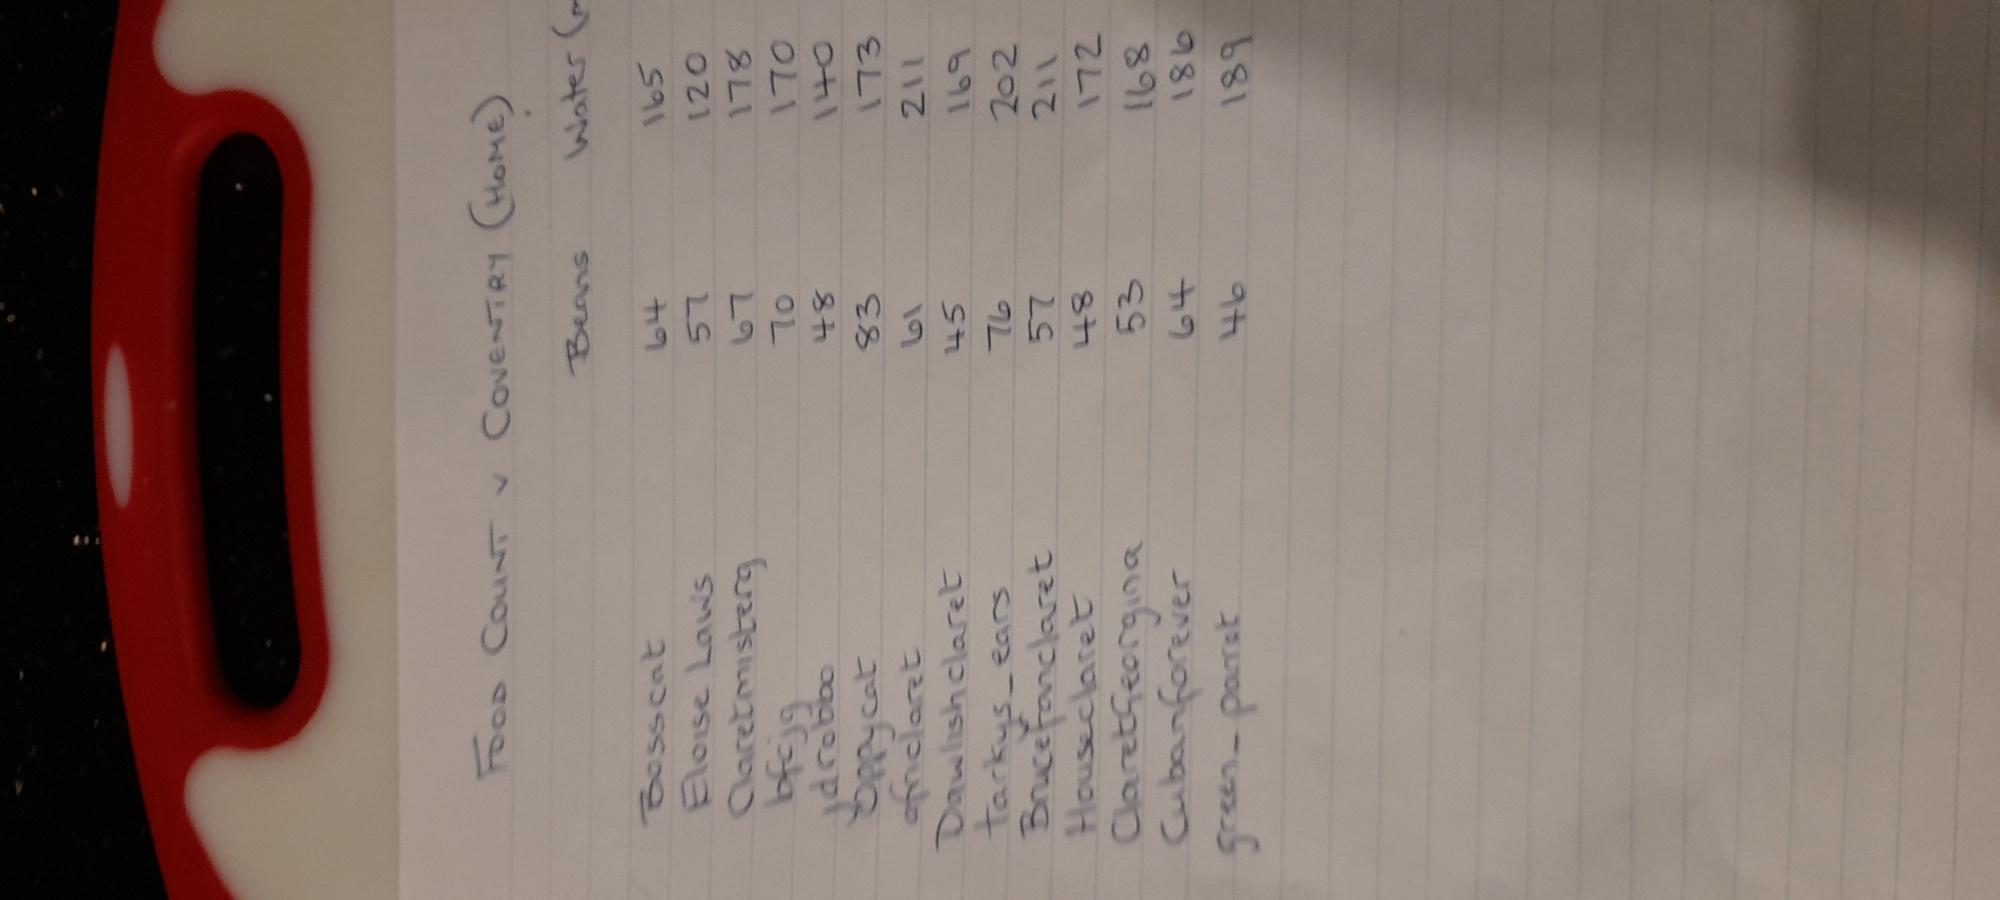 FOOD COUNT v COVENTRY (HOME)
Beans Water (
Bosscat 64 165
Eloise Laws 57 120
Claretmisterg 67 178
bfcjg 70 170
1drobbo 48 140
Yoppycat 83 173
ofnclaret 61 211
Dawlishclaret 45 169
tarkys_ears 76 202
Brucefanclaret 57 211
Houseclaret 48 172
ClaretGeorgina 53 168
Cubanforever 64 186
green_parrot 46 189